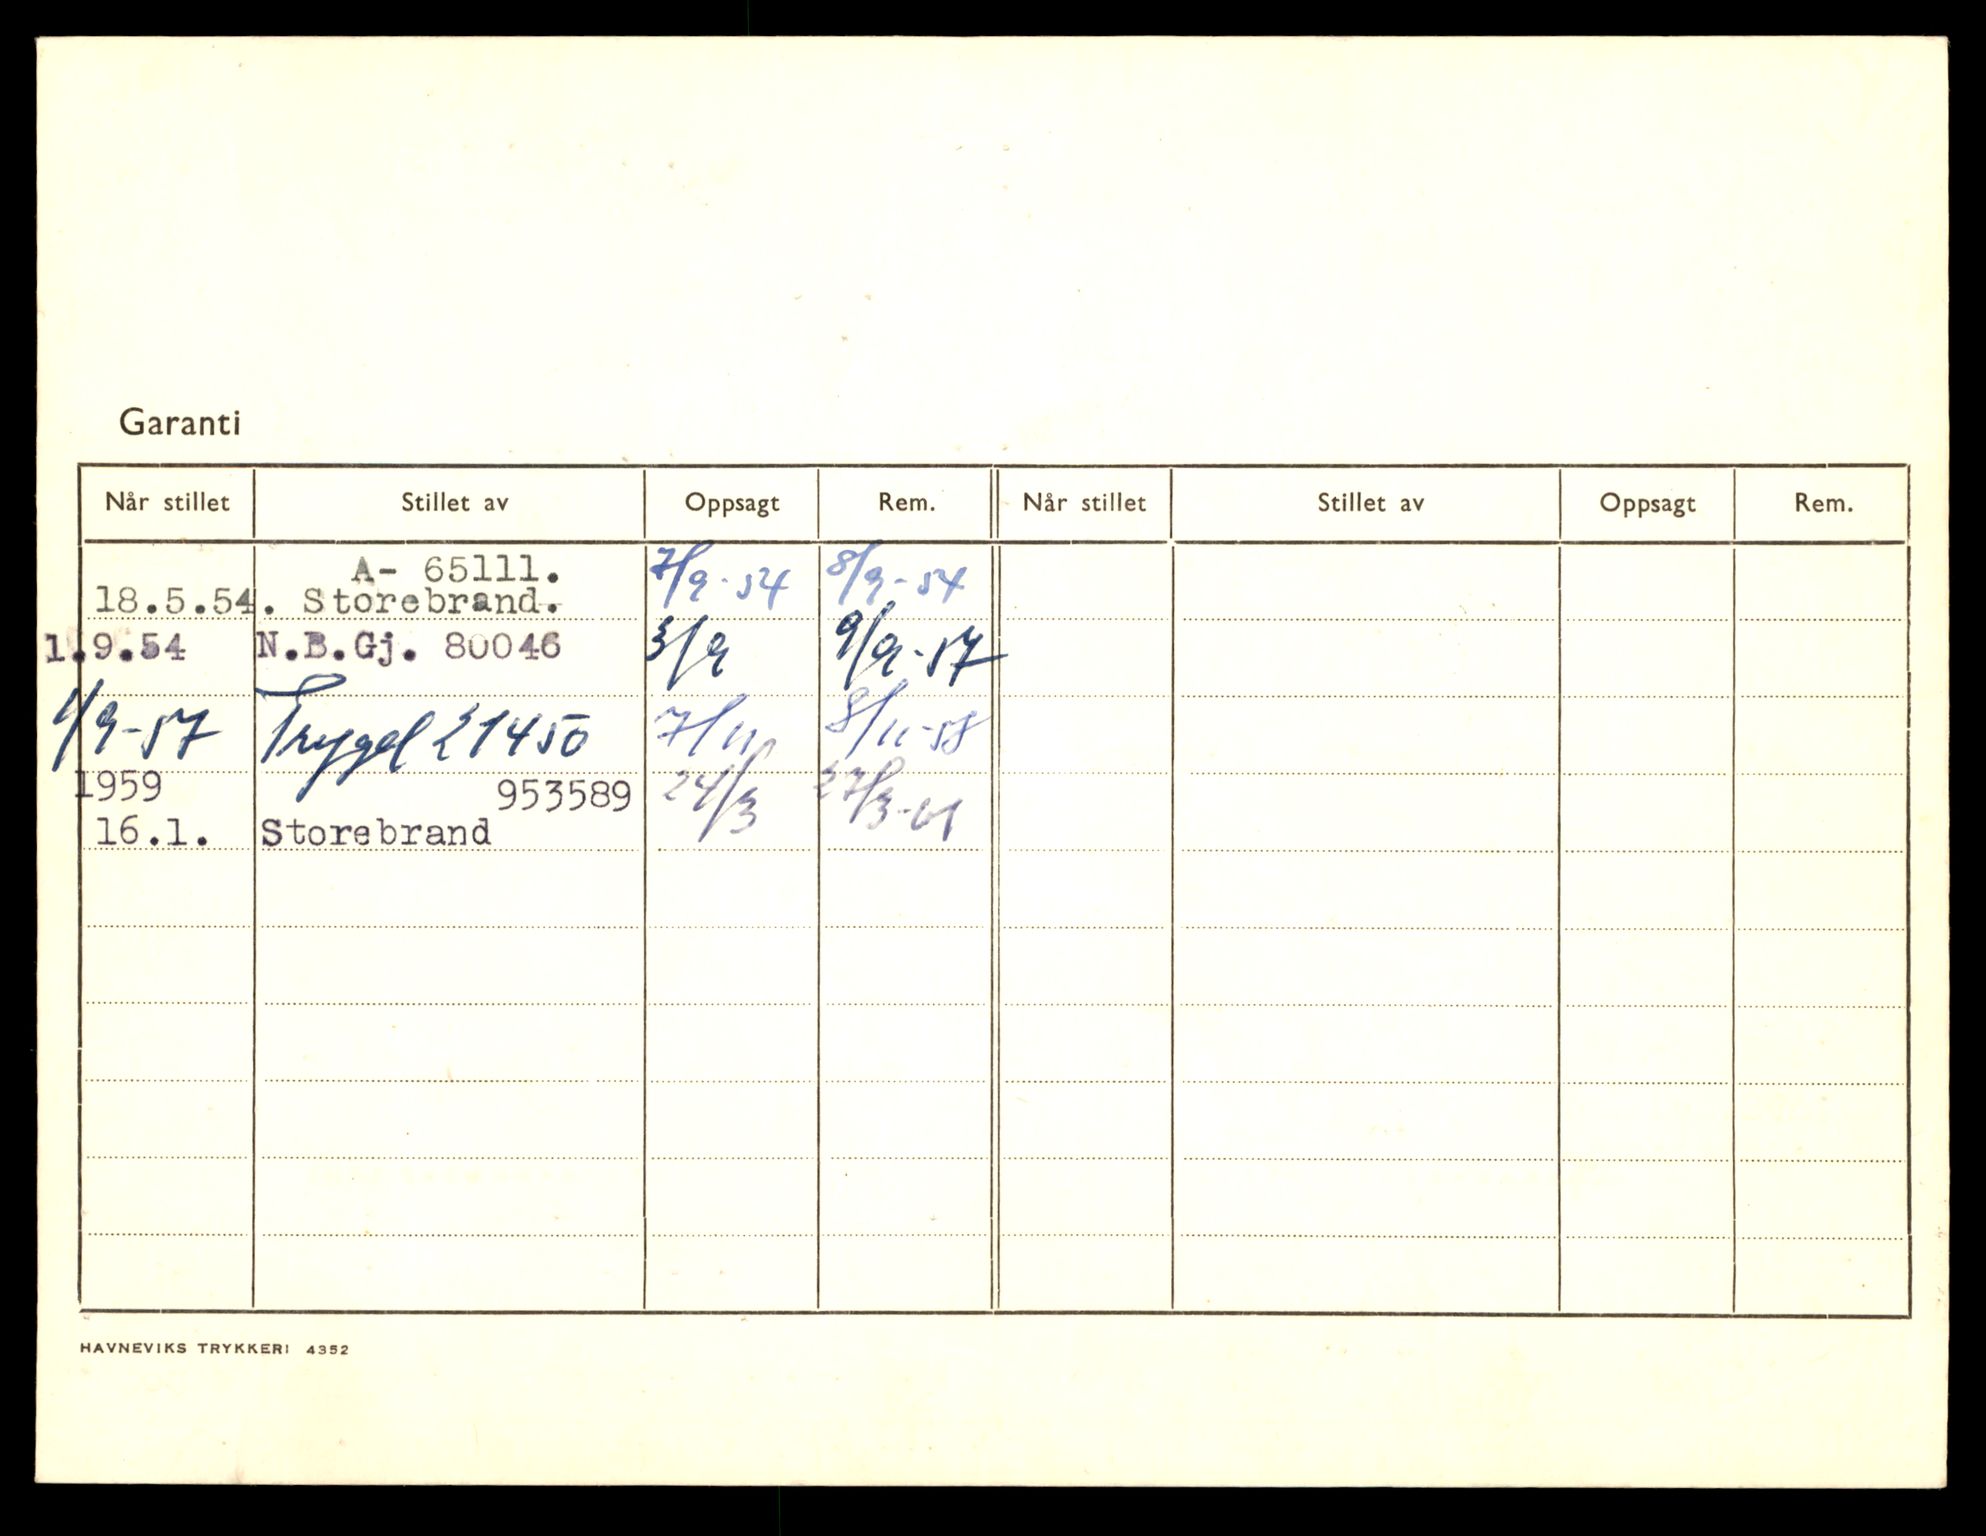 Garanti
Når stillet Stillet av Oppsagt Rem. Når stillet Stillet av Oppsagt Rem.
A- 65111. 7/9-54 8/9-54
18.5.54. Storebrand.
1.9.54 N.B.Gj. 80046 3/9 9/9-57
1/9-57 Trygd 21450 7/11 8/11-58
1959 953589 24/3 27/3-61
16.1. Storebrand
HAVNEVIKS TRYKKERI 4352